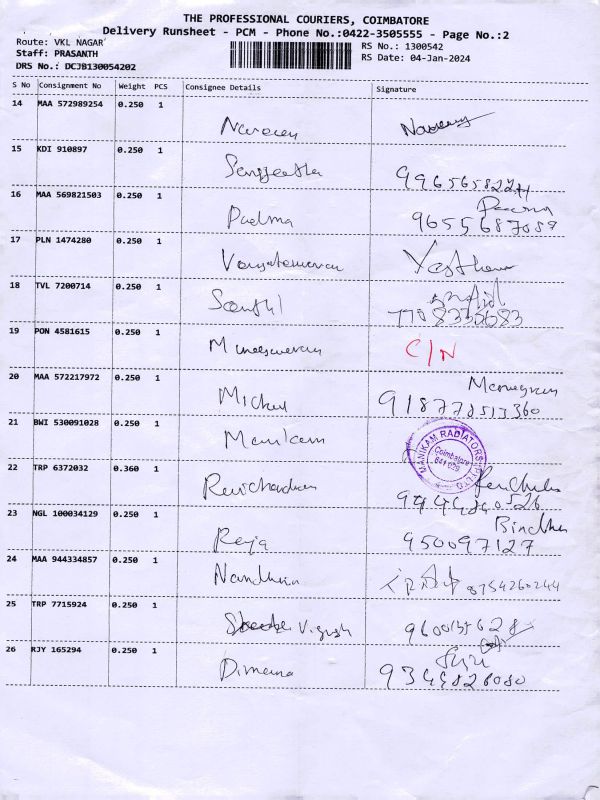 THE PROFESSIONAL COURIERS, COIMBATORE
Delivery Runsheet - PCM - Phone No.:0422-3505555 - Page No.:2
Route: VKL NAGAR
Staff: PRASANTH
DRS No.: DCJB130054202
RS No.: 1300542
RS Date: 04-Jan-2024
S No Consignment No Weight PCS Consignee Details Signature
14 MAA 572989254 0.250 1 Naveen
15 KDI 910897 0.250 1 Sangeetha
16 MAA 569821503 0.250 1 Padma 9655687089
17 PLN 1474280 0.250 1
18 TVL 7200714 0.250 1 Senthil
19 PON 4581615 0.250 1 Muneeswaran C/N
20 MAA 572217972 0.250 1 Mickel 918778513360
21 BWI 530091028 0.250 1 Manikam MANIKAM RADIATORS P LTD Coimbatore 641 029
22 TRP 6372032 0.360 1 Ravichandran
23 NGL 100034129 0.250 1 Raja Bindhu
950097127
24 MAA 944334857 0.250 1 Nandhini 8754260244
25 TRP 7715924 0.250 1 Vignesh
26 RJY 165294 0.250 1 Suji